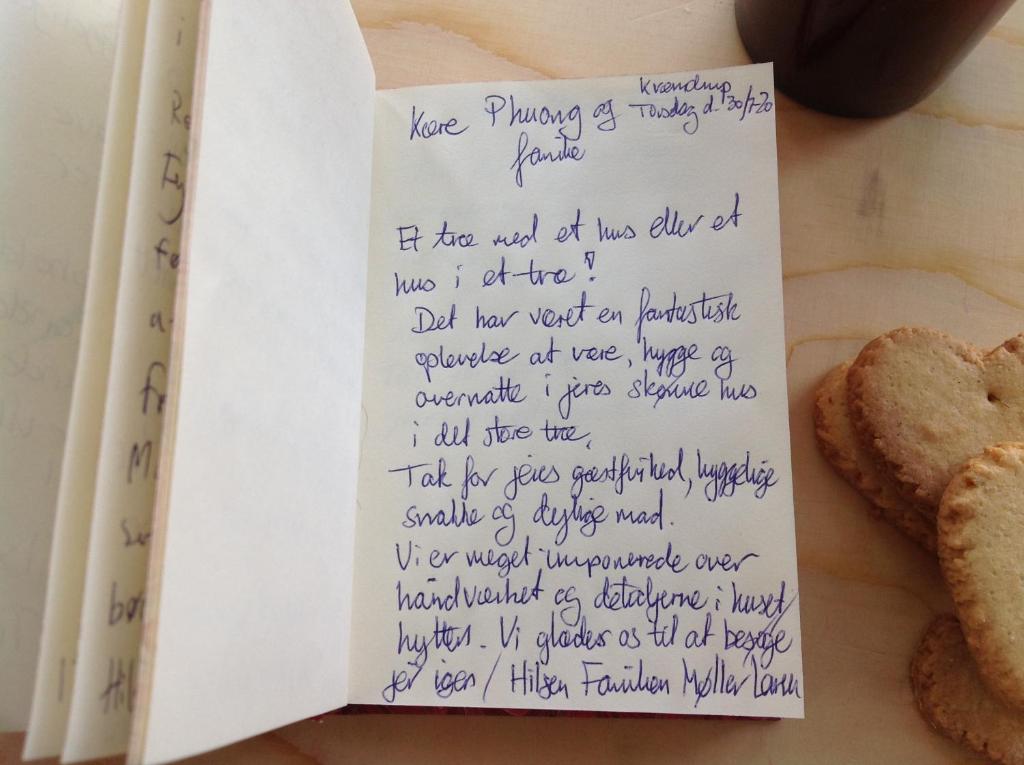 Krændrup
Kære Phuong og Torsdag d. 30/7-20
familie
Et træ med et hus eller et
hus i et træ?
Det har været en fantastisk
oplevelse at være, hygge og
overnatte i jeres skønne hus
i det store træ.
Tak for jeres gæstfrihed, hyggelige
snakke og dejlige mad.
Vi er meget imponerede over
håndværket og detaljerne i huset/
hytten. Vi glæder os til at besøge
jer igen / Hilsen Familien Møller Larsen